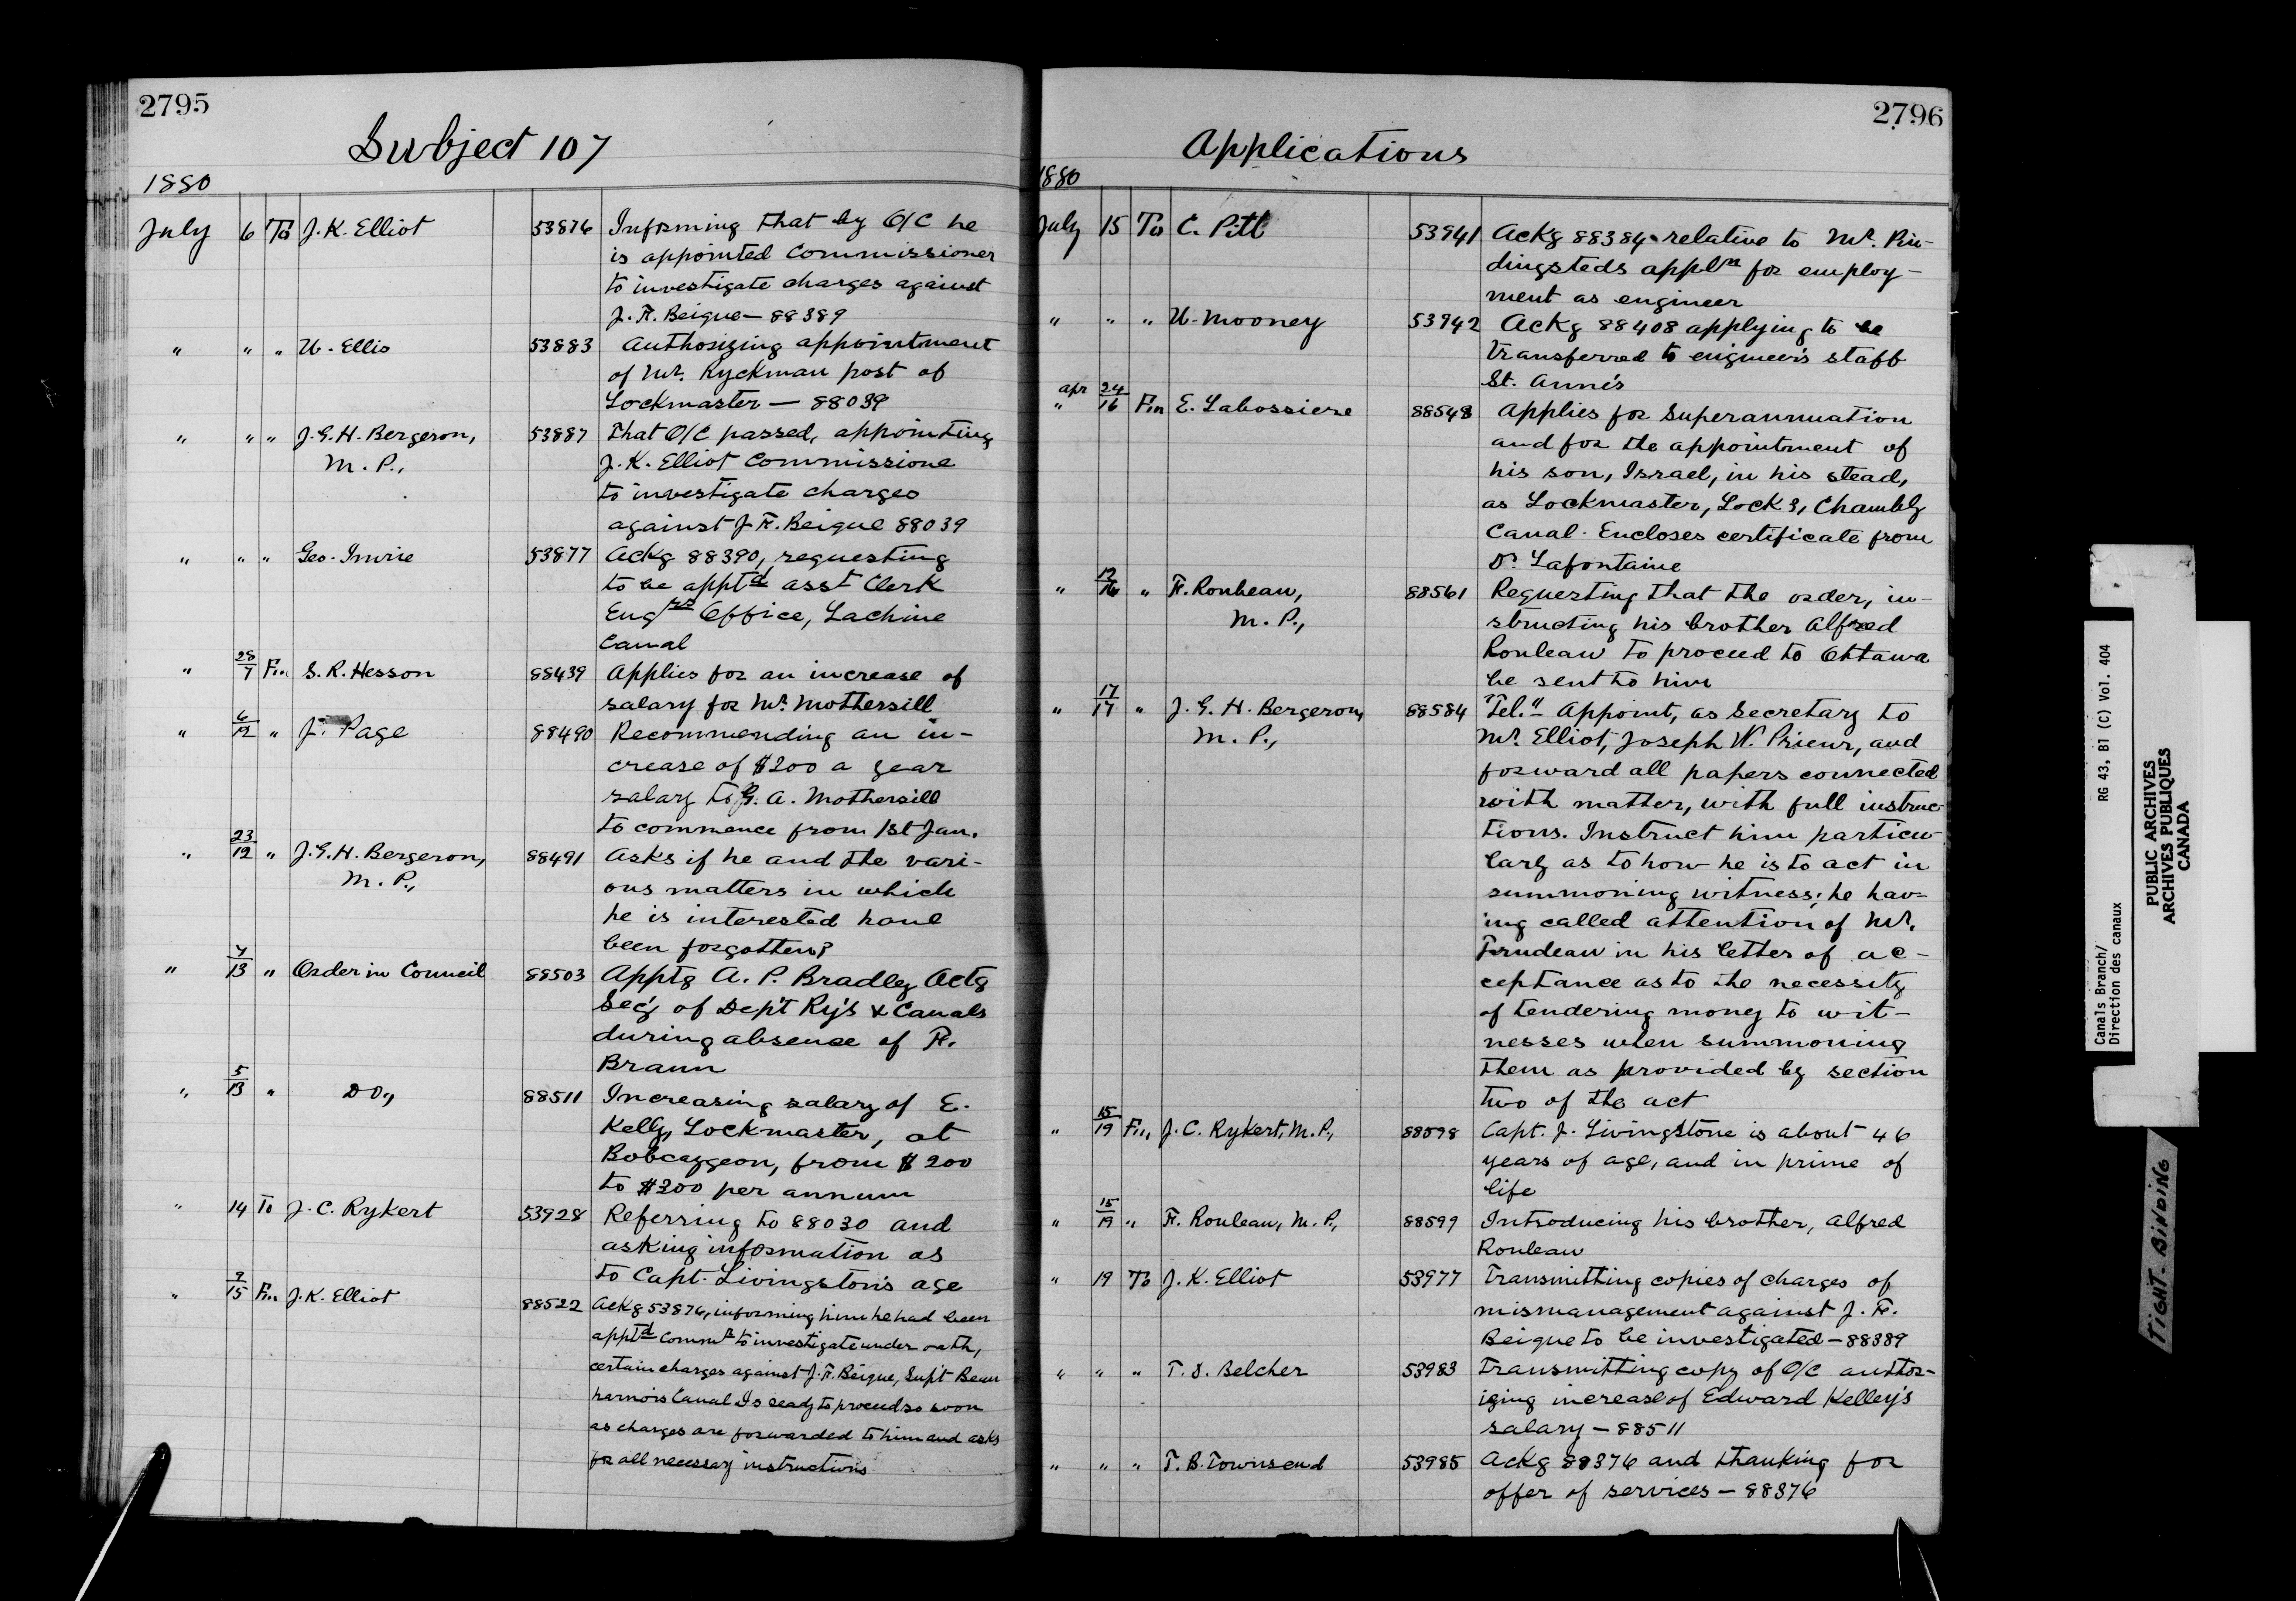 2795
Subject 107
1880
July 6 To J. K. Elliot 53876 Informing that by O/C he
is appointed Commissioner
to investigate charges against
J. F. Beique — 88389
" " " W. Ellis 53883 Authorizing appointment
of Mr. Ryckman post of
Lockmaster — 88039
" " " J. G. H. Bergeron, 53887 That O/C passed, appointing
M. P., J. K. Elliot Commissione
to investigate charges
against J. F. Beique 88039
" " " Geo. Irvine 53877 Ackg 88390, requesting
to be apptd asst Clerk
Engrs Office, Lachine
Canal
" 28/7 Fm S. R. Hesson 88439 Applies for an increase of
salary for Mr. Mothersill
" 6/12 " J. Page 88490 Recommending an in-
crease of $200 a year
salary to G. A. Mothersill
to commence from 1st Jan.
" 23/12 " J. G. H. Bergeron, 88491 Asks if he and the vari-
M. P., ous matters in which
he is interested have
been forgotten?
" 7/13 " Order in Council 88503 Apptg A. P. Bradley Actg
Sec'y of Dep't Ry's & Canals
during absence of F.
Braun
" 5/13 " Do., 88511 Increasing salary of E.
Kelly, Lockmaster, at
Bobcaygeon, from $200
to $300 per annum
" 14 To J. C. Rykert 53928 Referring to 88030 and
asking information as
to Capt. Livingston's age
" 9/15 Fm J. K. Elliot 88522 Ackg 53876, informing him he had been
apptd Commr to investigate under oath,
certain charges against J. F. Beique, Supt Beau
harnois Canal Is ready to proceed so soon
as charges are forwarded to him and asks
for all necessary instructions
2796
Applications
1880
July 15 To C. Pitt 53941 Ackg 88384 relative to Mr. Pin-
dingsteds appln for employ-
ment as engineer
" " " W. Mooney 53942 Ackg 88408 applying to be
transferred to engineer's staff
St. Anne's
" apr 24/16 Fm E. Labossiere 88548 Applies for Superannuation
and for the appointment of
his son, Israel, in his stead,
as Lockmaster, Lock 3, Chambly
Canal. Encloses certificate from
Dr. Lafontaine
" 12/16 " F. Rouleau, 88561 Requesting that the order, in-
M. P., structing his brother Alfred
Rouleau to proceed to Ottawa
be sent to him
" 17/17 " J. G. H. Bergeron, 88584 "Tel." Appoint, as Secretary to
M. P., Mr. Elliot, Joseph W. Prieur, and
forward all papers connected
with matter, with full instruc-
tions. Instruct him particu-
larly as to how he is to act in
summoning witness; he hav-
ing called attention of Mr.
Trudeau in his letter of ac-
ceptance as to the necessity
of tendering money to wit-
nesses when summoning
them as provided by section
two of the act
" 15/19 Fm J. C. Rykert, M. P., 88598 Capt. J. Livingstone is about 46
years of age, and in prime of
life
" 15/19 " F. Rouleau, M. P., 88599 Introducing his brother, Alfred
Rouleau
" 19 To J. K. Elliot 53977 Transmitting copies of charges of
mismanagement against J. F.
Beique to be investigated — 88389
" " " T. S. Belcher 53983 Transmitting copy of O/C author-
izing increase of Edward Kelley's
salary — 88511
" " " T. B. Townsend 53985 Ackg 88376 and thanking for
offer of services — 88376
Canals Branch/ RG 43, B1 (C) Vol. 404
Direction des canaux
PUBLIC ARCHIVES
ARCHIVES PUBLIQUES
CANADA
TIGHT BINDING